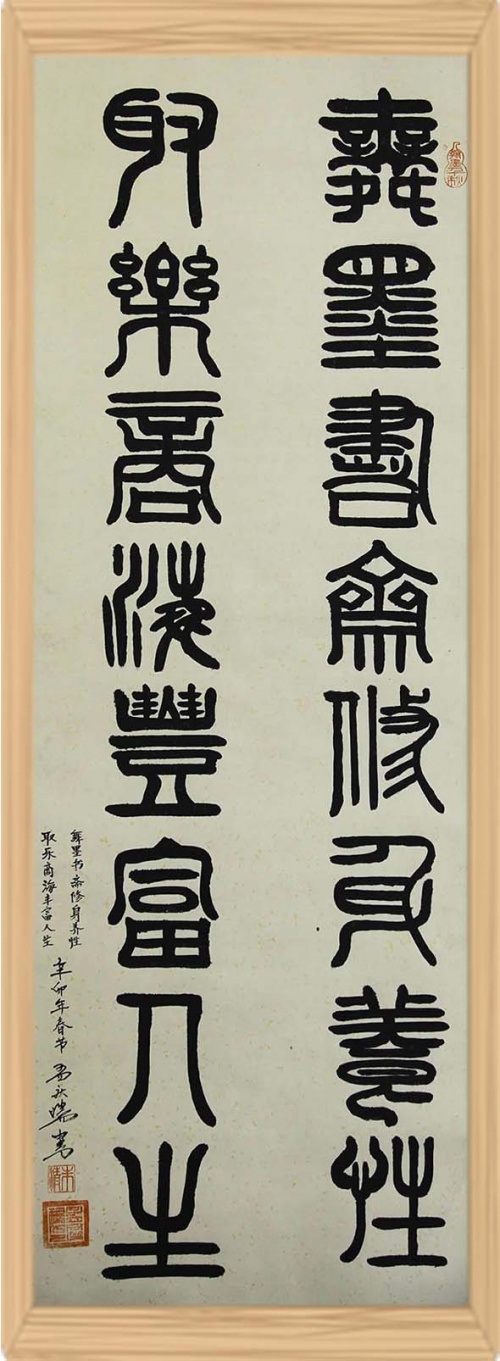 舞墨書齋修身養性
取樂商海豐富人生
舞墨书斋修身养性
取乐商海丰富人生
辛卯年春节
书